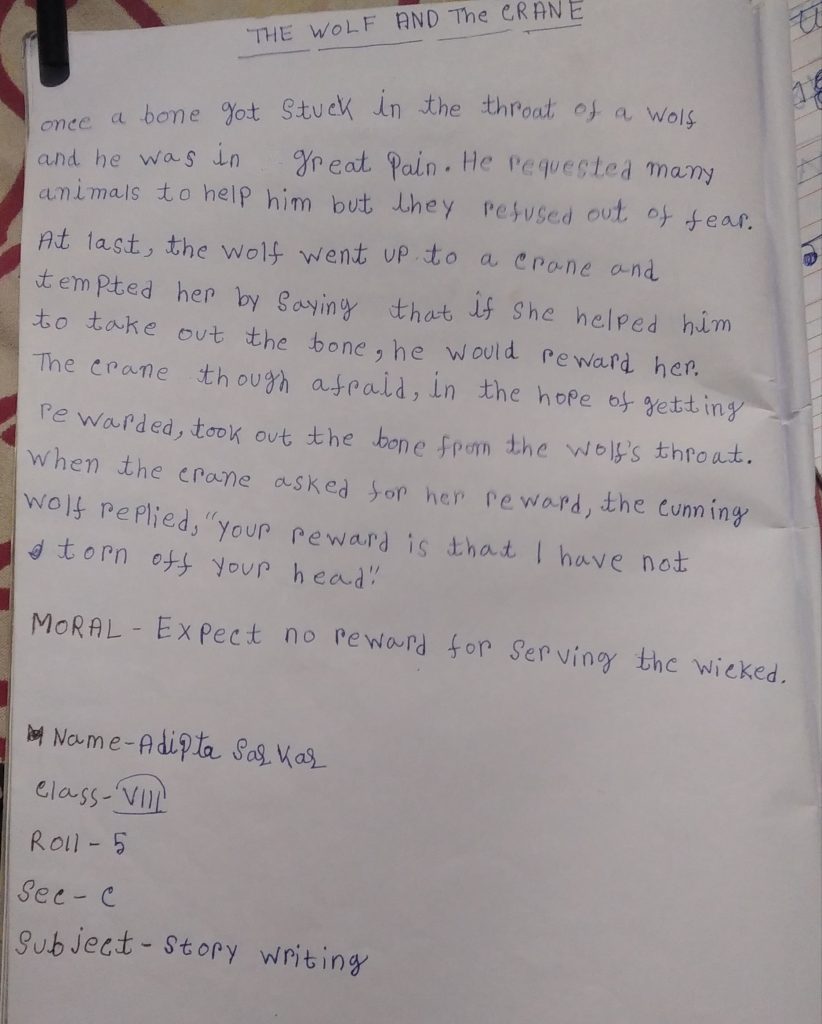 THE WOLF AND The CRANE
once a bone got stuck in the throat of a wolf
and he was in great pain. He requested many
animals to help him but they refused out of fear.
At last, the wolf went up to a crane and
tempted her by Saying that if She helped him
to take out the bone, he would reward her.
The crane though afraid, in the hope of getting
rewarded, took out the bone from the wolf's throat.
when the crane asked for her reward, the cunning
wolf replied, "your reward is that I have not
torn off your head."
MORAL - Expect no reward for Serving the wicked.
Name - Adipta Sarkar
Class - VIII
Roll - 5
Sec - C
Subject - Story writing